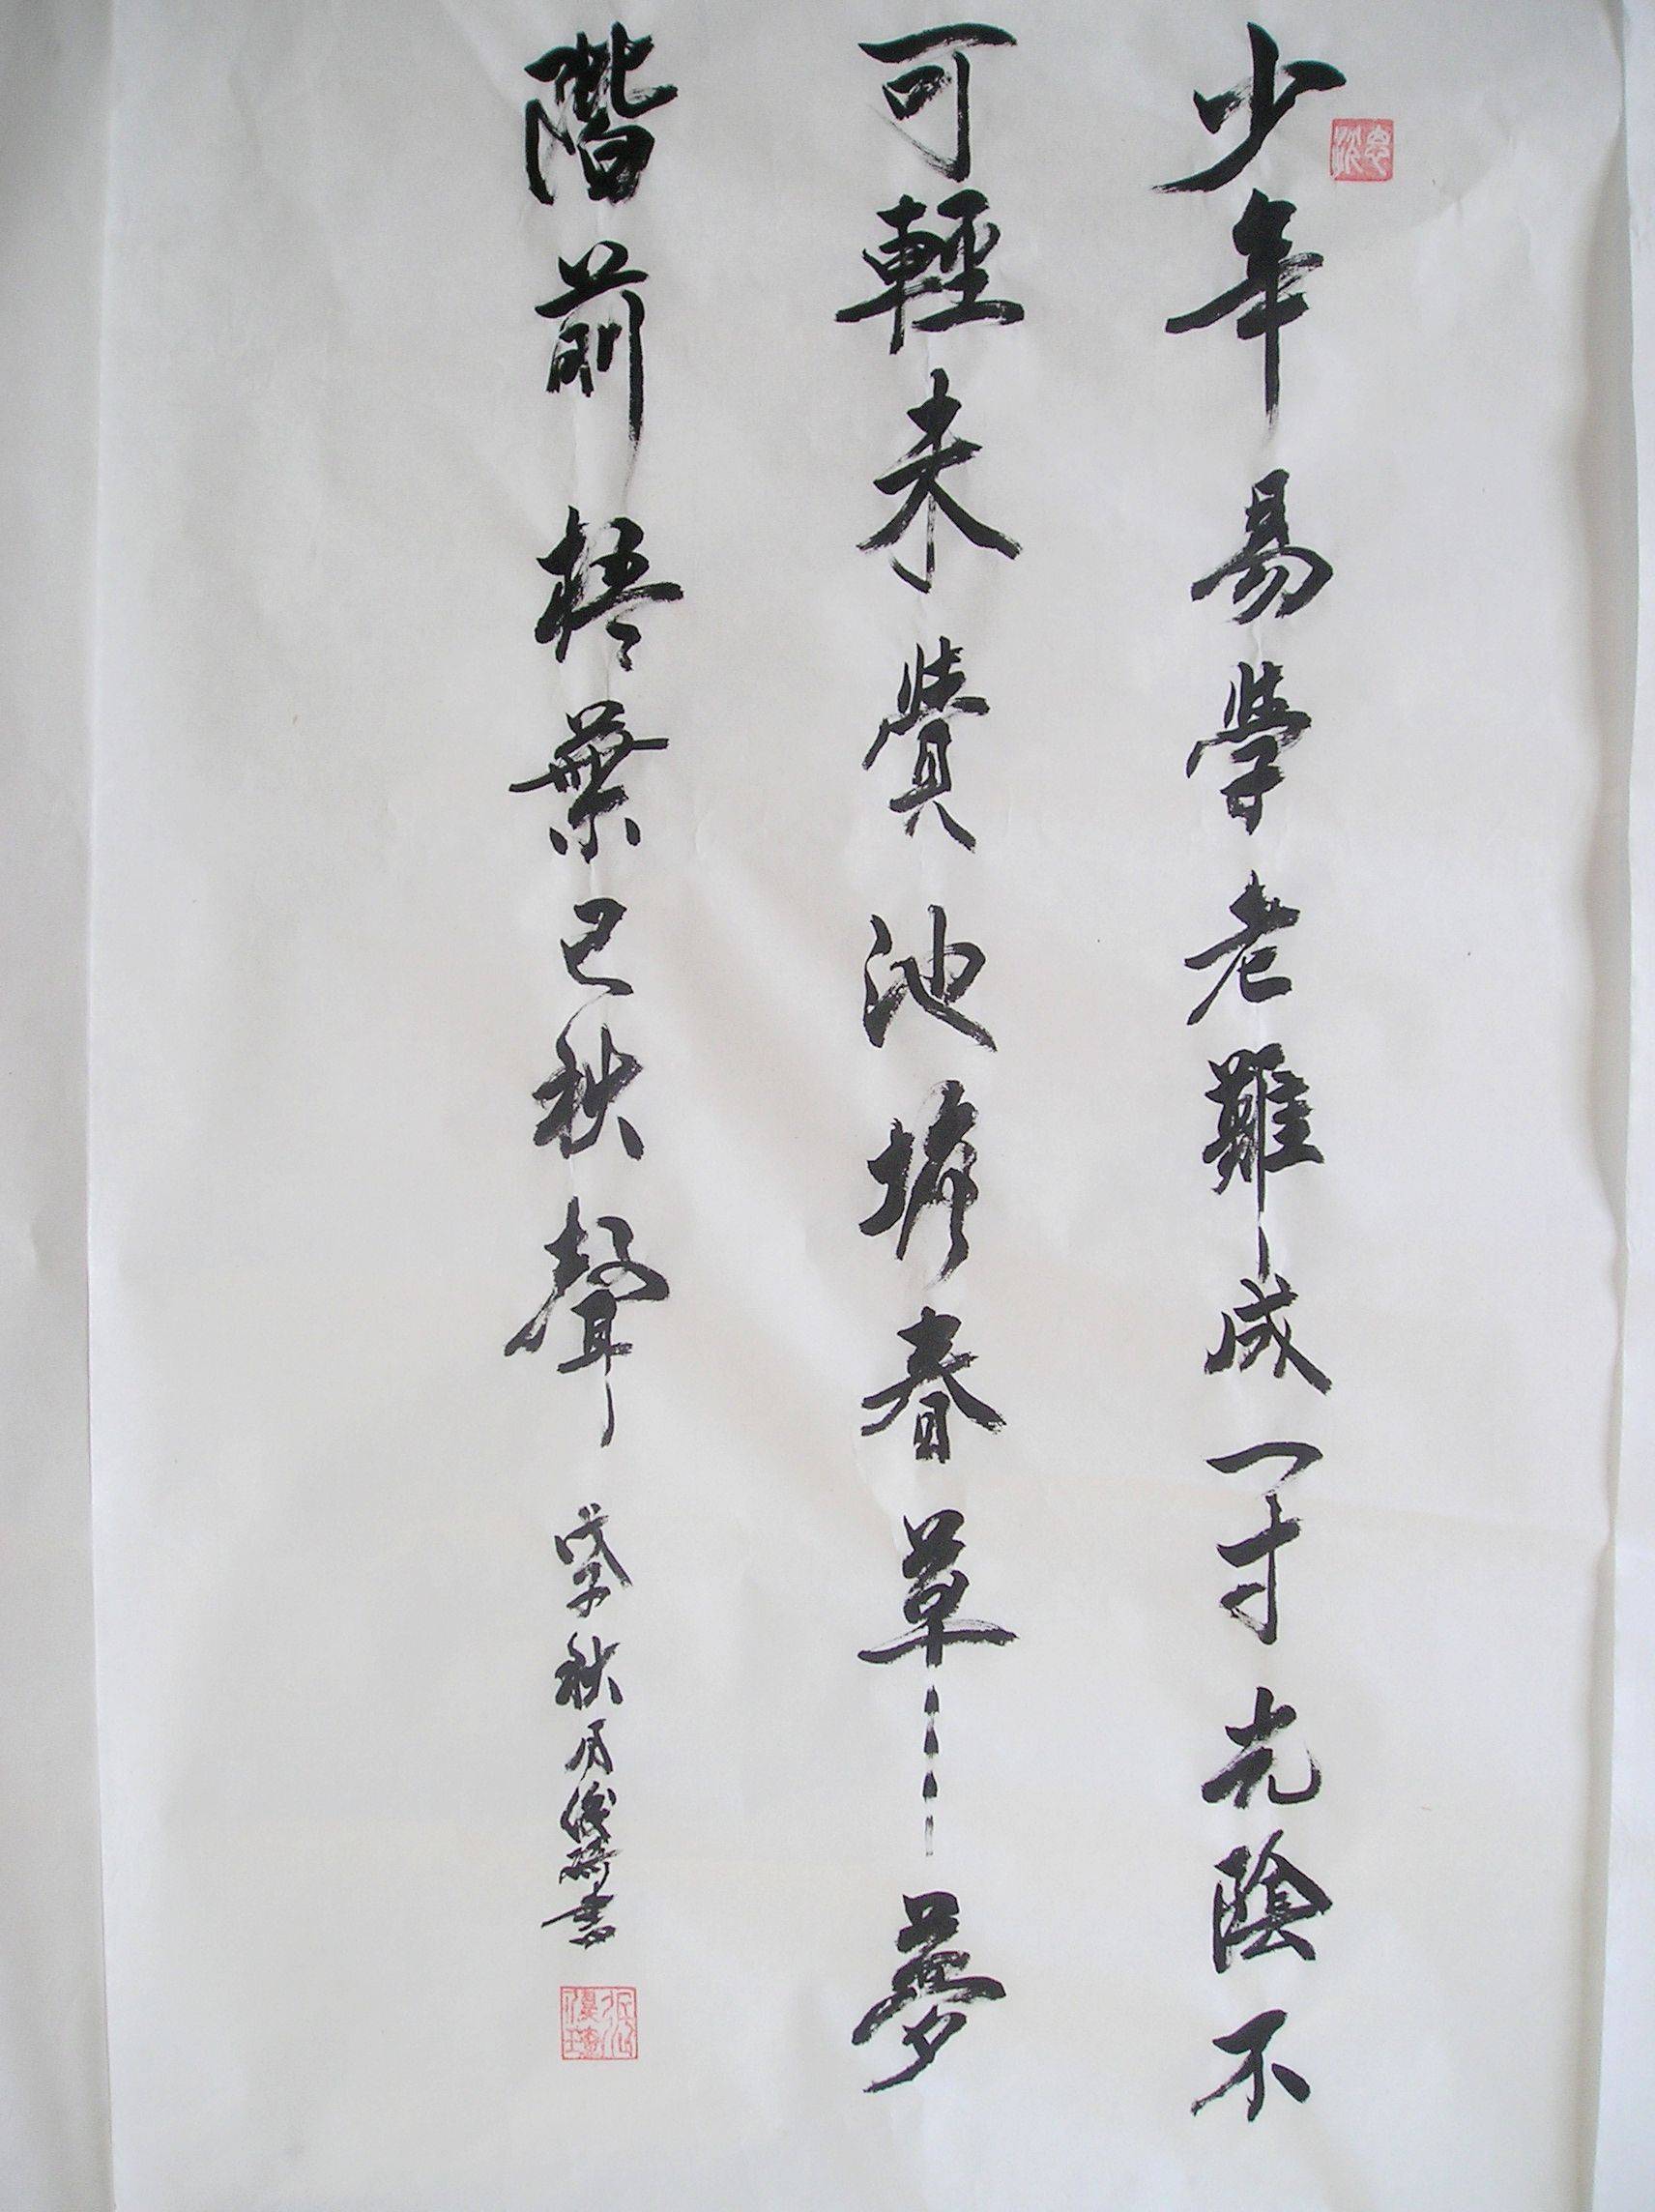 少年易學老難成一寸光陰不
可輕未覺池塘春草夢
階前梧葉已秋聲 戊子秋月書